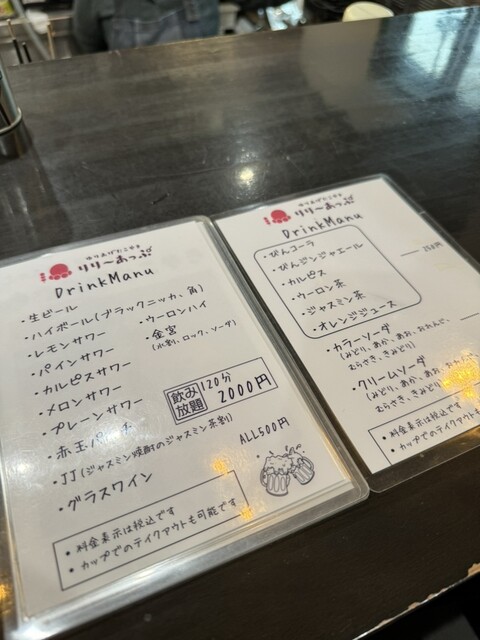 りり〜あっぷ
DrinkManu
・生ビール
・ハイボール(ブラックニッカ、角)
・レモンサワー
・ウーロンハイ
・パインサワー
・金宮
(水割、ロック、ソーダ)
・カルピスサワー
・メロンサワー
・プレーンサワー
飲み放題 120分 2000円
・赤玉パンチ
・JJ(ジャスミン焼酎のジャスミン茶割)
・グラスワイン
ALL500円
・料金表示は税込です
・カップでのテイクアウトも可能です
りり〜あっぷ
DrinkManu
・びんコーラ
・びんジンジャエール
・カルピス
・ウーロン茶
・ジャスミン茶
・オレンジジュース
・カラーソーダ
(みどり、あか、あお、おれんじ、
むらさき、きみどり)
・クリームソーダ
(みどり、あか、あお、
むらさき、きみどり
・料金表示は税込です
・カップでのテイクアウトも可能です